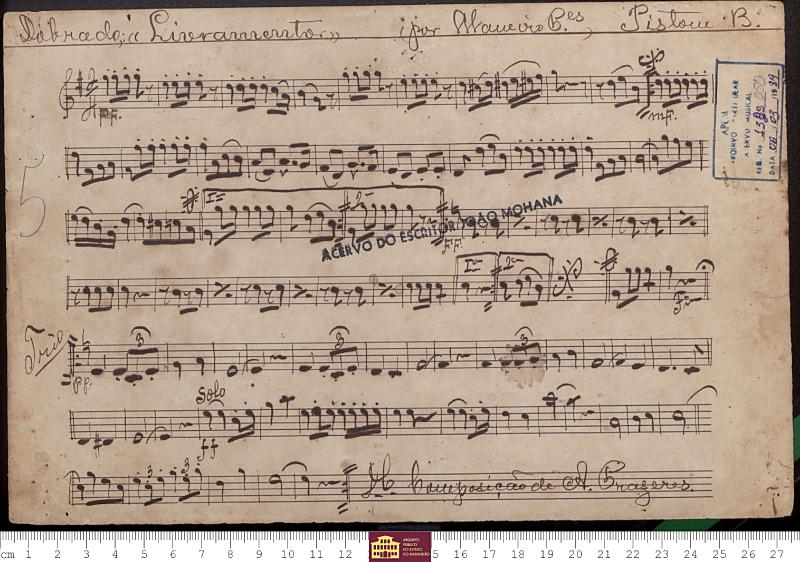 Dobrado; "Livramento" por Pistom B.
pp. mf.
ACERVO MUSICAL
REG. No
DATA
5
1ª 2ª
ACERVO DO ESCRITOR JOÃO MOHANA
ff.
1ª 2ª
Fim
Trio
3 3 3
pp.
Solo
ff
3 3
Composição de A. Prazeres.
cm 1 2 3 4 5 6 7 8 9 10 11 12 15 16 17 18 19 20 21 22 23 24 25 26 27
ARQUIVO
PÚBLICO
DO ESTADO
DO MARANHÃO